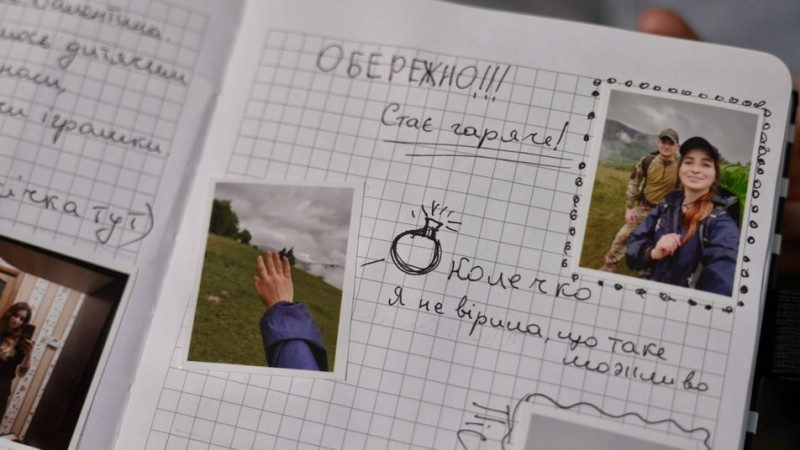 Валентина.
дитячим
іграшки
тут)
ОБЕРЕЖНО!!!
Стає гаряче!
Колечко
Я не вірила, що таке
можливо